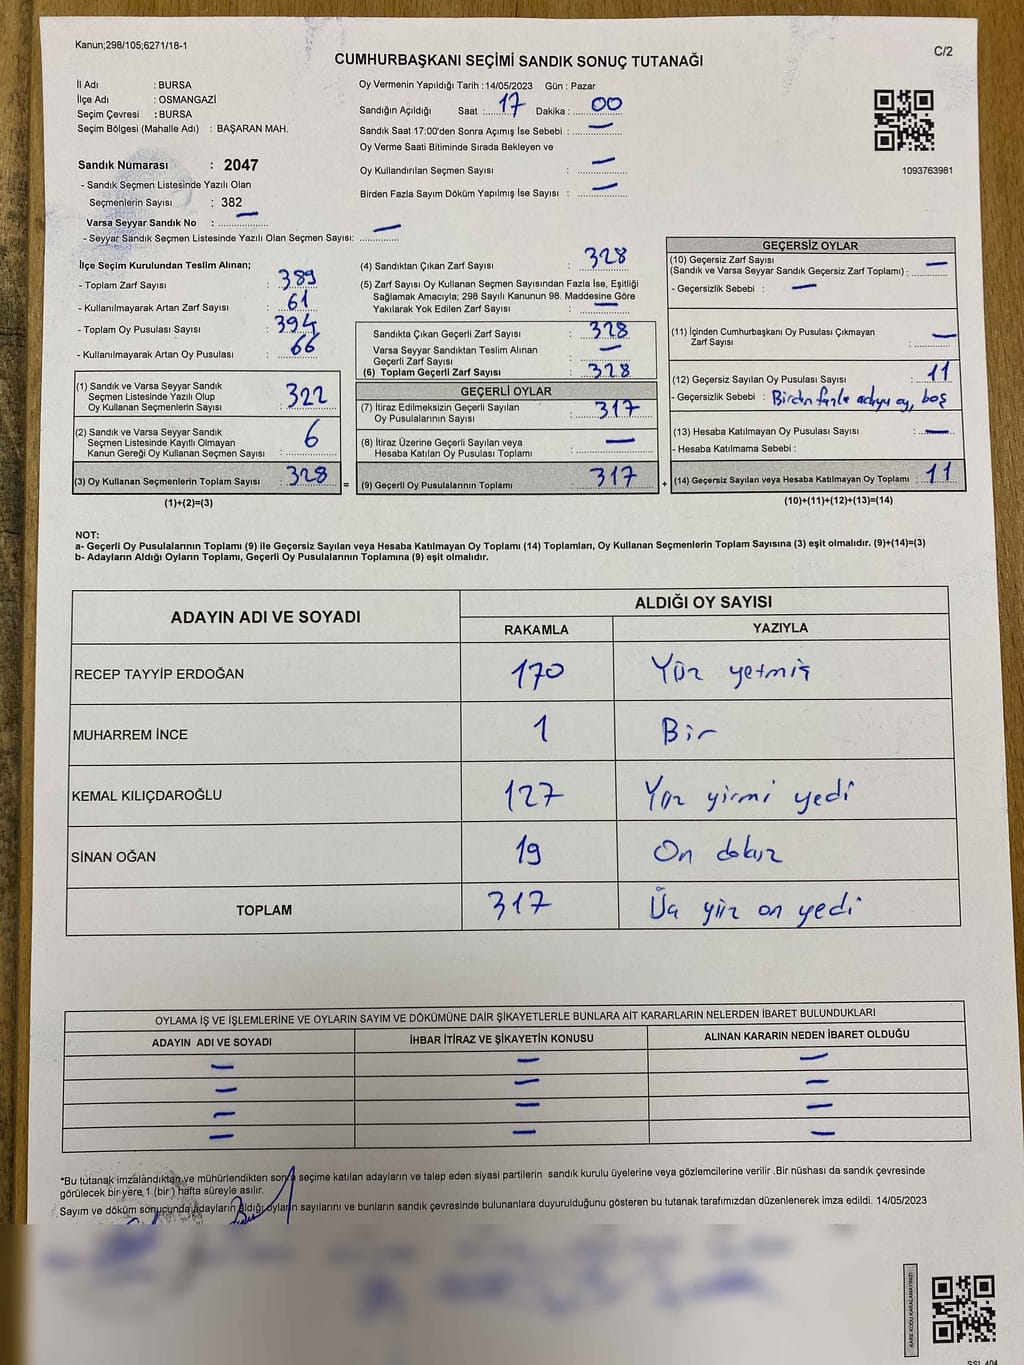 Kanun;298/105;6271/18-1
C/2
CUMHURBAŞKANI SEÇİMİ SANDIK SONUÇ TUTANAĞI
İl Adı : BURSA
İlçe Adı : OSMANGAZİ
Seçim Çevresi : BURSA
Seçim Bölgesi (Mahalle Adı) : BAŞARAN MAH.
Oy Vermenin Yapıldığı Tarih :14/05/2023 Gün : Pazar
Sandığın Açıldığı Saat : 17 Dakika : 00
Sandık Saat 17:00'den Sonra Açımış İse Sebebi : —
Oy Verme Saati Bitiminde Sırada Bekleyen ve
Oy Kullandırılan Seçmen Sayısı : —
Birden Fazla Sayım Döküm Yapılmış İse Sayısı : —
1093763981
Sandık Numarası : 2047
- Sandık Seçmen Listesinde Yazılı Olan
Seçmenlerin Sayısı : 382
Varsa Seyyar Sandık No : —
- Seyyar Sandık Seçmen Listesinde Yazılı Olan Seçmen Sayısı: —
İlçe Seçim Kurulundan Teslim Alınan;
- Toplam Zarf Sayısı : 389
- Kullanılmayarak Artan Zarf Sayısı : 61
- Toplam Oy Pusulası Sayısı : 394
- Kullanılmayarak Artan Oy Pusulası : 66
(1) Sandık ve Varsa Seyyar Sandık
Seçmen Listesinde Yazılı Olup
Oy Kullanan Seçmenlerin Sayısı : 322
(2) Sandık ve Varsa Seyyar Sandık
Seçmen Listesinde Kayıtlı Olmayan
Kanun Gereği Oy Kullanan Seçmen Sayısı : 6
(3) Oy Kullanan Seçmenlerin Toplam Sayısı : 328
(1)+(2)=(3)
=
(4) Sandıktan Çıkan Zarf Sayısı : 328
(5) Zarf Sayısı Oy Kullanan Seçmen Sayısından Fazla İse, Eşitliği
Sağlamak Amacıyla; 298 Sayılı Kanunun 98. Maddesine Göre
Yakılarak Yok Edilen Zarf Sayısı : —
Sandıkta Çıkan Geçerli Zarf Sayısı : 328
Varsa Seyyar Sandıktan Teslim Alınan
Geçerli Zarf Sayısı : —
(6) Toplam Geçerli Zarf Sayısı : 328
GEÇERLİ OYLAR
(7) İtiraz Edilmeksizin Geçerli Sayılan
Oy Pusulalarının Sayısı : 317
(8) İtiraz Üzerine Geçerli Sayılan veya
Hesaba Katılan Oy Pusulası Toplamı : —
(9) Geçerli Oy Pusulalarının Toplamı : 317
+
GEÇERSİZ OYLAR
(10) Geçersiz Zarf Sayısı
(Sandık ve Varsa Seyyar Sandık Geçersiz Zarf Toplamı) : —
- Geçersizlik Sebebi : —
(11) İçinden Cumhurbaşkanı Oy Pusulası Çıkmayan
Zarf Sayısı : —
(12) Geçersiz Sayılan Oy Pusulası Sayısı : 11
- Geçersizlik Sebebi : Birden fazla adaya oy, boş
(13) Hesaba Katılmayan Oy Pusulası Sayısı : —
- Hesaba Katılmama Sebebi :
(14) Geçersiz Sayılan veya Hesaba Katılmayan Oy Toplamı : 11
(10)+(11)+(12)+(13)=(14)
NOT:
a- Geçerli Oy Pusulalarının Toplamı (9) ile Geçersiz Sayılan veya Hesaba Katılmayan Oy Toplamı (14) Toplamları, Oy Kullanan Seçmenlerin Toplam Sayısına (3) eşit olmalıdır. (9)+(14)=(3)
b- Adayların Aldığı Oyların Toplamı, Geçerli Oy Pusulalarının Toplamına (9) eşit olmalıdır.
ADAYIN ADI VE SOYADI ALDIĞI OY SAYISI
RAKAMLA YAZIYLA
RECEP TAYYİP ERDOĞAN 170 Yüz yetmiş
MUHARREM İNCE 1 Bir
KEMAL KILIÇDAROĞLU 127 Yüz yirmi yedi
SİNAN OĞAN 19 On dokuz
TOPLAM 317 Üç yüz on yedi
OYLAMA İŞ VE İŞLEMLERİNE VE OYLARIN SAYIM VE DÖKÜMÜNE DAİR ŞİKAYETLERLE BUNLARA AİT KARARLARIN NELERDEN İBARET BULUNDUKLARI
ADAYIN ADI VE SOYADI İHBAR İTİRAZ VE ŞİKAYETİN KONUSU ALINAN KARARIN NEDEN İBARET OLDUĞU
— — —
— — —
— — —
— — —
*Bu tutanak imzalandıktan ve mühürlendikten sonra seçime katılan adayların ve talep eden siyasi partilerin sandık kurulu üyelerine veya gözlemcilerine verilir .Bir nüshası da sandık çevresinde
görülecek bir yere, 1 (bir ) hafta süreyle asılır.
Sayım ve döküm sonucunda adayların aldığı oyların sayılarını ve bunların sandık çevresinde bulunanlara duyurulduğunu gösteren bu tutanak tarafımızdan düzenlenerek imza edildi. 14/05/2023
KARE KODU KARALAMAYINIZ!